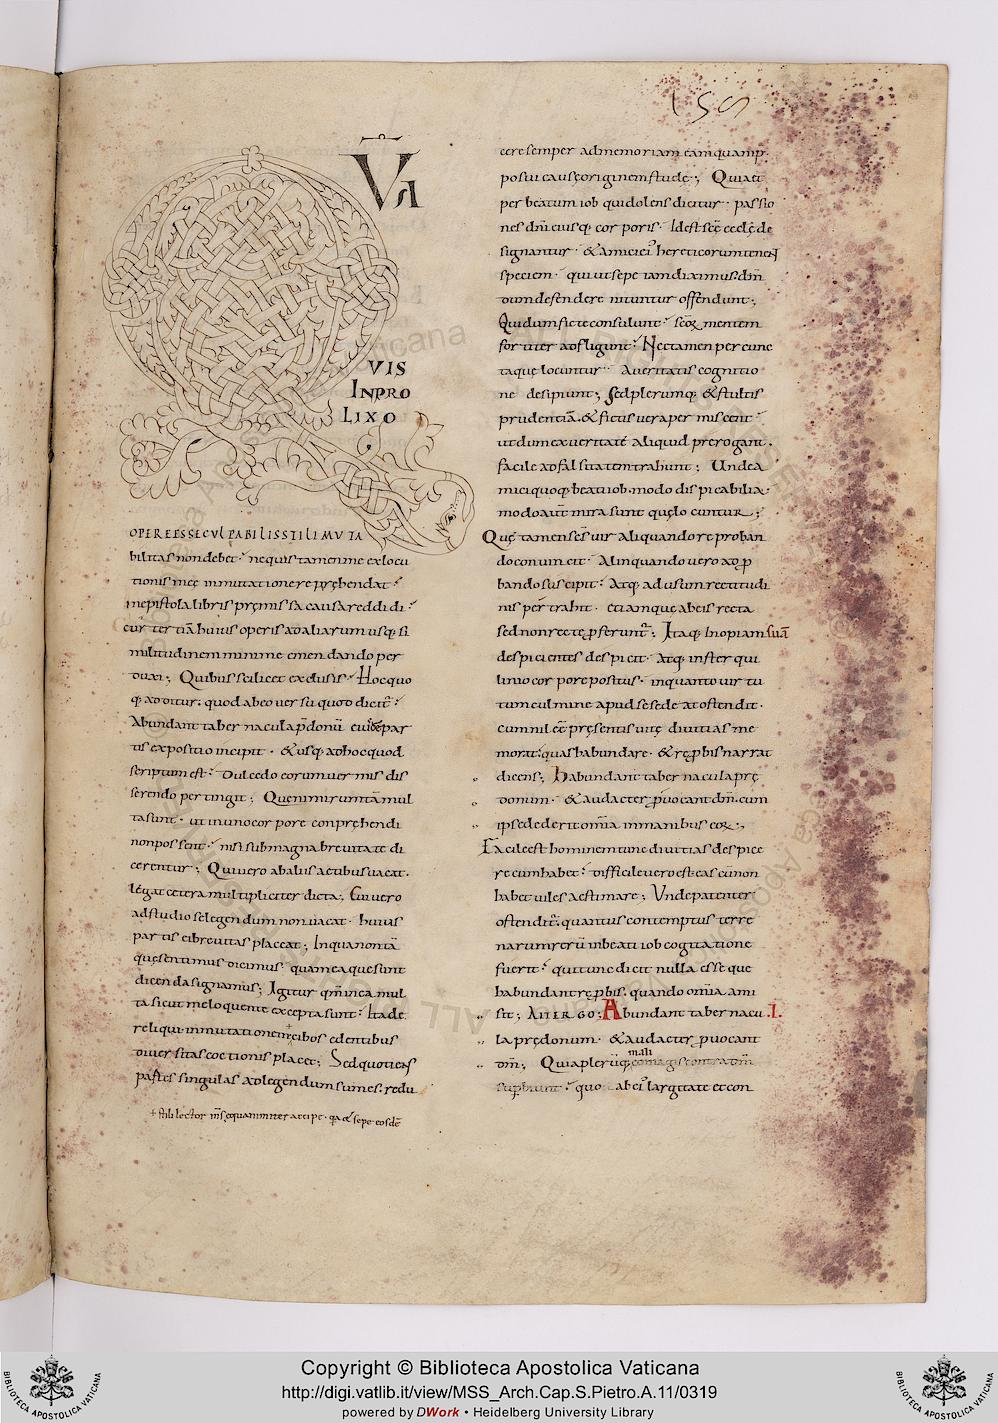 VIS
IN PRO
LIXO
OPERE ESSE CULPABILIS STILI MUTA
bilitas non debet. nequis tamen me ex locu
tionis meę inmutatione repręhendat.
in epistola libris pręmissa causa reddidi.
cur tertiā huius operis ad aliarum usq; si
militudinem minime emendando per
duxi; Quibus scilicet exclusis. Hoc quo
q; additur. quod abeo versu quo dicit̄.
Abundant tabernacula p̄donū eiusde par
tis expositio incipit. & usq; ad hoc quod
scriptum est. Dulcedo eorum vermis dis
serendo pertingit; Que nimirum tā mul
ta sunt. ut in uno corpore conpręhendi
non possent. nisi sub magna brevitate di
cerentur; Qui vero ab aliis actibus vacat.
legat cetera multipliciter dicta; Cui vero
ad studiose legendum non vacat. huius
partis ei brevitas placeat; In qua non tā
quę sentimus dicimus. quam ea que sunt
dicenda signamus; Igitur qm̄ in ea mul
ta sicut me loquente excepta sunt. Ita de
reliqui inmutationem cibos edentibus
diversitas coctionis placet; Sed quotiens
partes singulas ad legendum sumes. redu
+ stili lector
cere semper ad memoriam eam quam p̄
posui causę originem stude; Quia et
per beatum iob qui dolens dicitur. passio
nes dn̄i eiusq; corporis. Id est sc̄ę ecclę de
signantur. & amici ei' hereticorum tenent
speciem. qui ut sepe iam diximus. dm̄
dum defendere nituntur offendunt;
Qui dum ficte consulunt. sc̄oꝝ mentem
fortiter adfligunt. Nec tamen per cunc
taquę locuntur. A veritatis cognitio
ne desipiunt; sed plerumq; & stultis
prudentiā. & fictis vera permiscent.
ut dum ex veritate aliquid prerogant.
facile ad falsitatem trahunt; Unde a
mici quoq; beati iob. modo dispicabilia.
modo aut̄ mira sunt quę locuntur;
Quę tamen sc̄s vir aliquando reproban
do convincit. Aliquando vero adp̄
bando suscipit. Atq; ad usum rectitudi
nis pertrahit. etiam que ab eis recta
sed non recte p̄feruntr̄; Itaq; Inopiam suā
despicientes despicit. Atq; in stercqui
linio corpore positus. in quanto virtu
tum culmine apud se sedeat ostendit.
cum nil eē pręsentis vitę divitias me
morat. quas habundare & rępbis narrat
dicens; Habundant tabernacula prę
donum. & audacter p̄vocant dm̄. cum
ipse dederit om̄ia in manibus eoꝝ;
Facile est hominem tunc divitias despice
re cum habet. difficile vero est eas cū non
habet viles aestimare; Unde patenter
ostendit̄. quantus contemptus terre
narum rerū in beati iob cogitatione
fuerit. qui tunc dicit nulla esse que
habundant rępbis. quando om̄ia ami
sit; AIT ERGO; Abundant tabernacu .I.
la prędonum. & audacter p̄vocant
dm̄; Quia plerūq; eo magis contra dm̄
mali
superbiunt. quo ab ei' largitate et con
Copyright © Biblioteca Apostolica Vaticana
http://digi.vatlib.it/view/MSS_Arch.Cap.S.Pietro.A.11/0319
powered by DWork • Heidelberg University Library
BIBLIOTECA APOSTOLICA VATICANA
BIBLIOTECA APOSTOLICA VATICANA